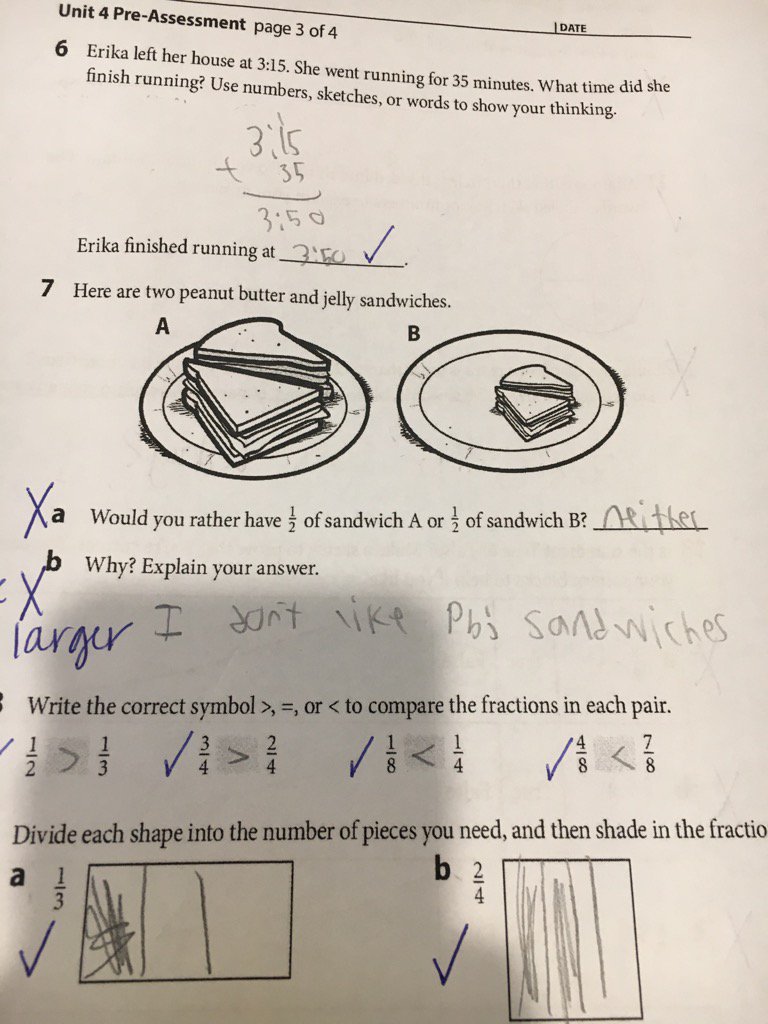 Unit 4 Pre-Assessment page 3 of 4
DATE
6 Erika left her house at 3:15. She went running for 35 minutes. What time did she
finish running? Use numbers, sketches, or words to show your thinking.
3:15
+ 35
3:50
Erika finished running at 3:50 ✓.
7 Here are two peanut butter and jelly sandwiches.
A B
X a Would you rather have 1/2 of sandwich A or 1/2 of sandwich B? neither
X b Why? Explain your answer.
larger I don't like Pbj Sandwiches
Write the correct symbol >, =, or < to compare the fractions in each pair.
✓ 1/2 > 1/3 ✓ 3/4 > 2/4 ✓ 1/8 < 1/4 ✓ 4/8 < 7/8
Divide each shape into the number of pieces you need, and then shade in the fractio
a 1/3 b 2/4
✓ ✓